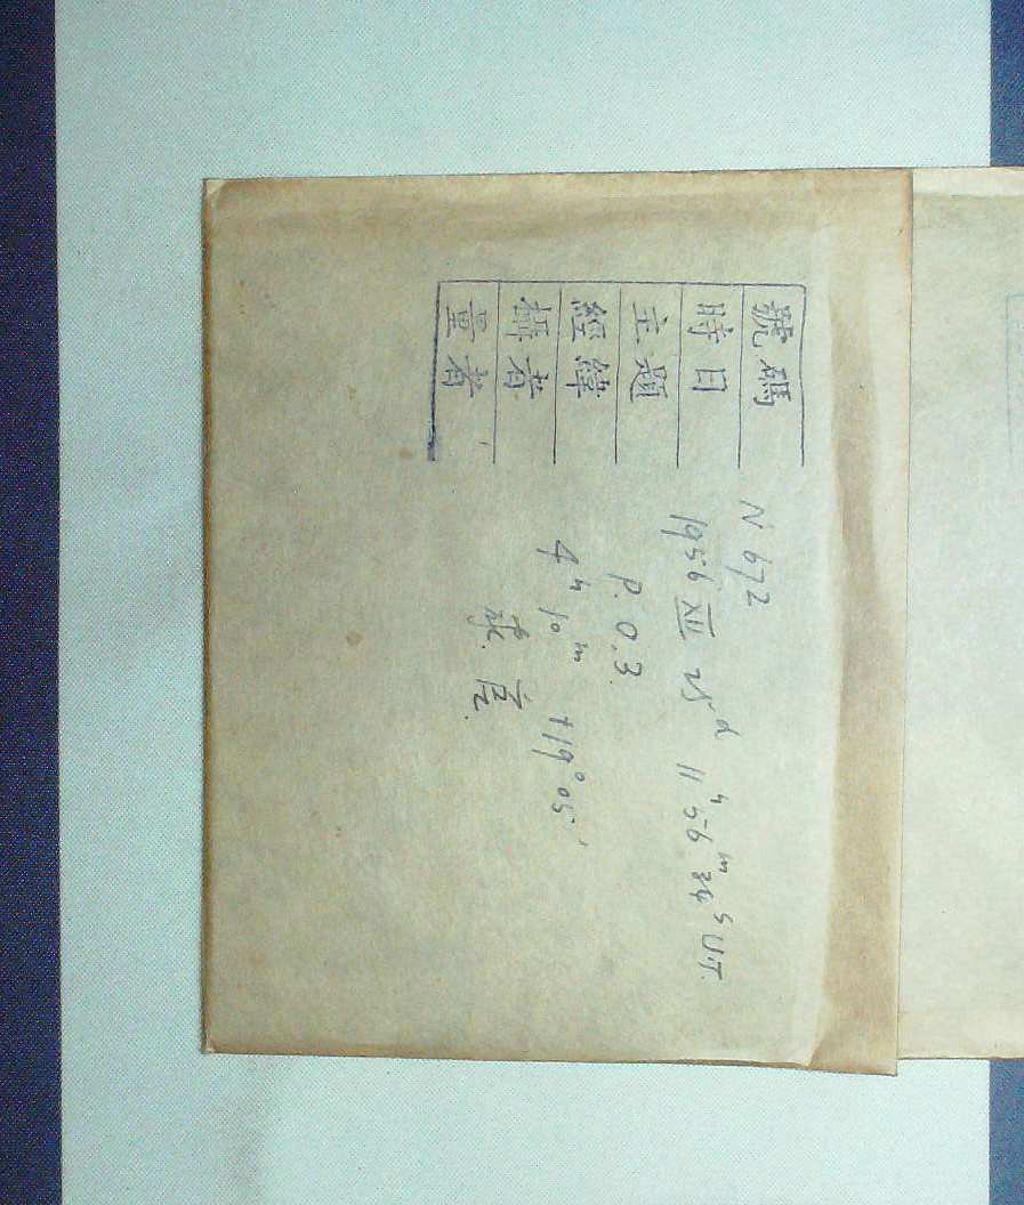 號碼 N 672
時日 1956 XII 25ᵈ 11ʰ 56ᵐ 34ˢ U.T.
主題 P. 0.3.
經緯 4ʰ 10ᵐ +19° 05′
攝者
量者